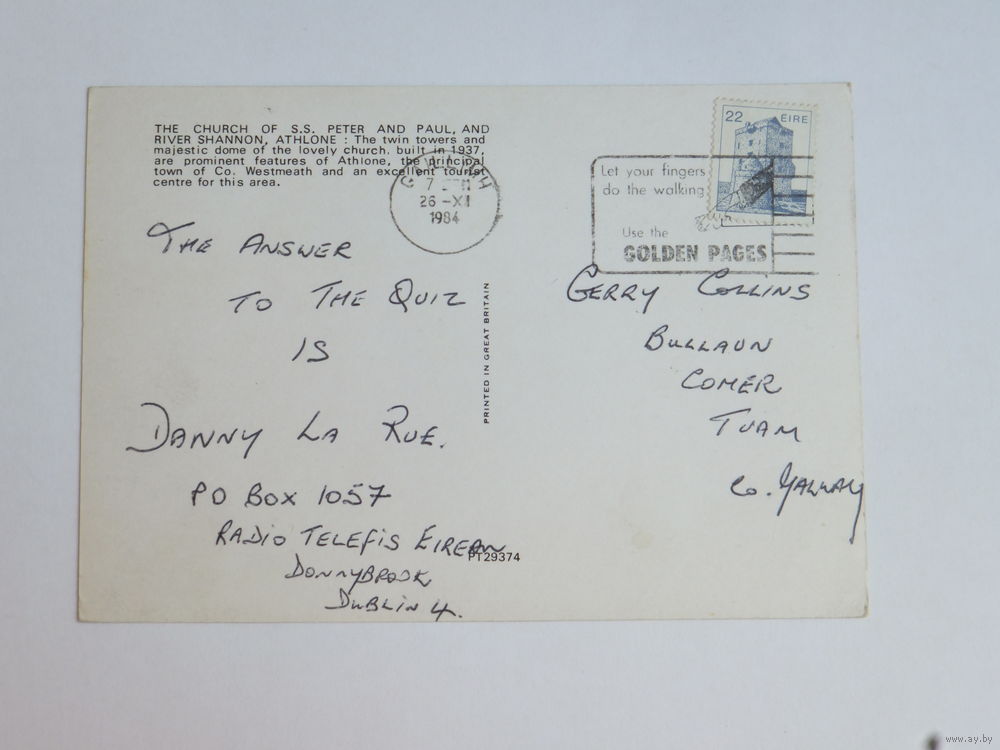 THE CHURCH OF S.S. PETER AND PAUL, AND
RIVER SHANNON, ATHLONE : The twin towers and
majestic dome of the lovely church. built in 1937,
are prominent features of Athlone, the principal
town of Co. Westmeath and an excellent tourist
centre for this area.
26 -XI
1984
22 EIRE
Let your fingers
do the walking
Use the
GOLDEN PAGES
THE ANSWER
TO THE QUIZ
IS
DANNY LA RUE.
PO BOX 1057
RADIO TELEFIS EIREAN
DONNYBROOK
DUBLIN 4.
PRINTED IN GREAT BRITAIN
PT29374
GERRY COLLINS
BULLAUN
COMER
TUAM
Co. GALWAY
www.ay.by